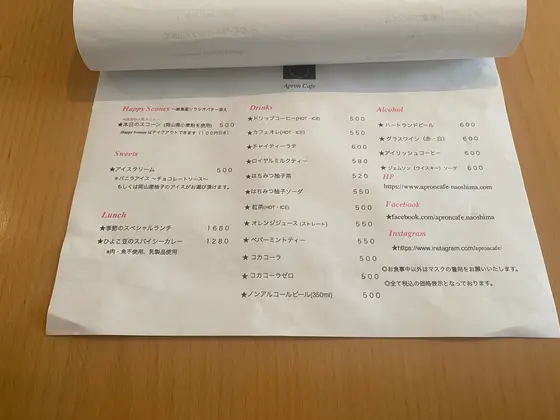 Apron Cafe
Happy Scones ～練無産ソラシオバター添え
★本日のスコーン (岡山県小麦粉を使用) 500
Happy Scones はテイクアウトできます (100円引き)
Sweets
★アイスクリーム 500
*バニラアイス ～チョコレートソース～
もしくは岡山産柚子のアイスがお選び頂けます。
Lunch
★季節のスペシャルランチ 1680
★ひよこ豆のスパイシーカレー 1280
*肉・魚不使用、乳製品使用
Drinks
★ドリップコーヒー(HOT・ICE) 500
★カフェオレ(HOT・ICE) 550
★チャイティーラテ 600
★ロイヤルミルクティー 580
★はちみつ柚子茶 520
★はちみつ柚子ソーダ 550
★紅茶(HOT・ICE) 500
★オレンジジュース (ストレート) 550
★ペパーミントティー 550
★コカコーラ 500
★コカコーラゼロ 500
★ノンアルコールビール(350ml) 500
Alcohol
★ハートランドビール 600
★グラスワイン (赤・白) 600
★アイリッシュコーヒー 600
★ジェムソン (ウイスキー) ソーダ 600
HP
https://www.aproncafe-naoshima.com
Facebook
★facebook.com/aproncafe.naoshima
Instagram
★https://www.instagram.com/aproncafe/
◎お食事中以外はマスクの着用をお願いいたします。
◎全て税込の価格表示となっております。